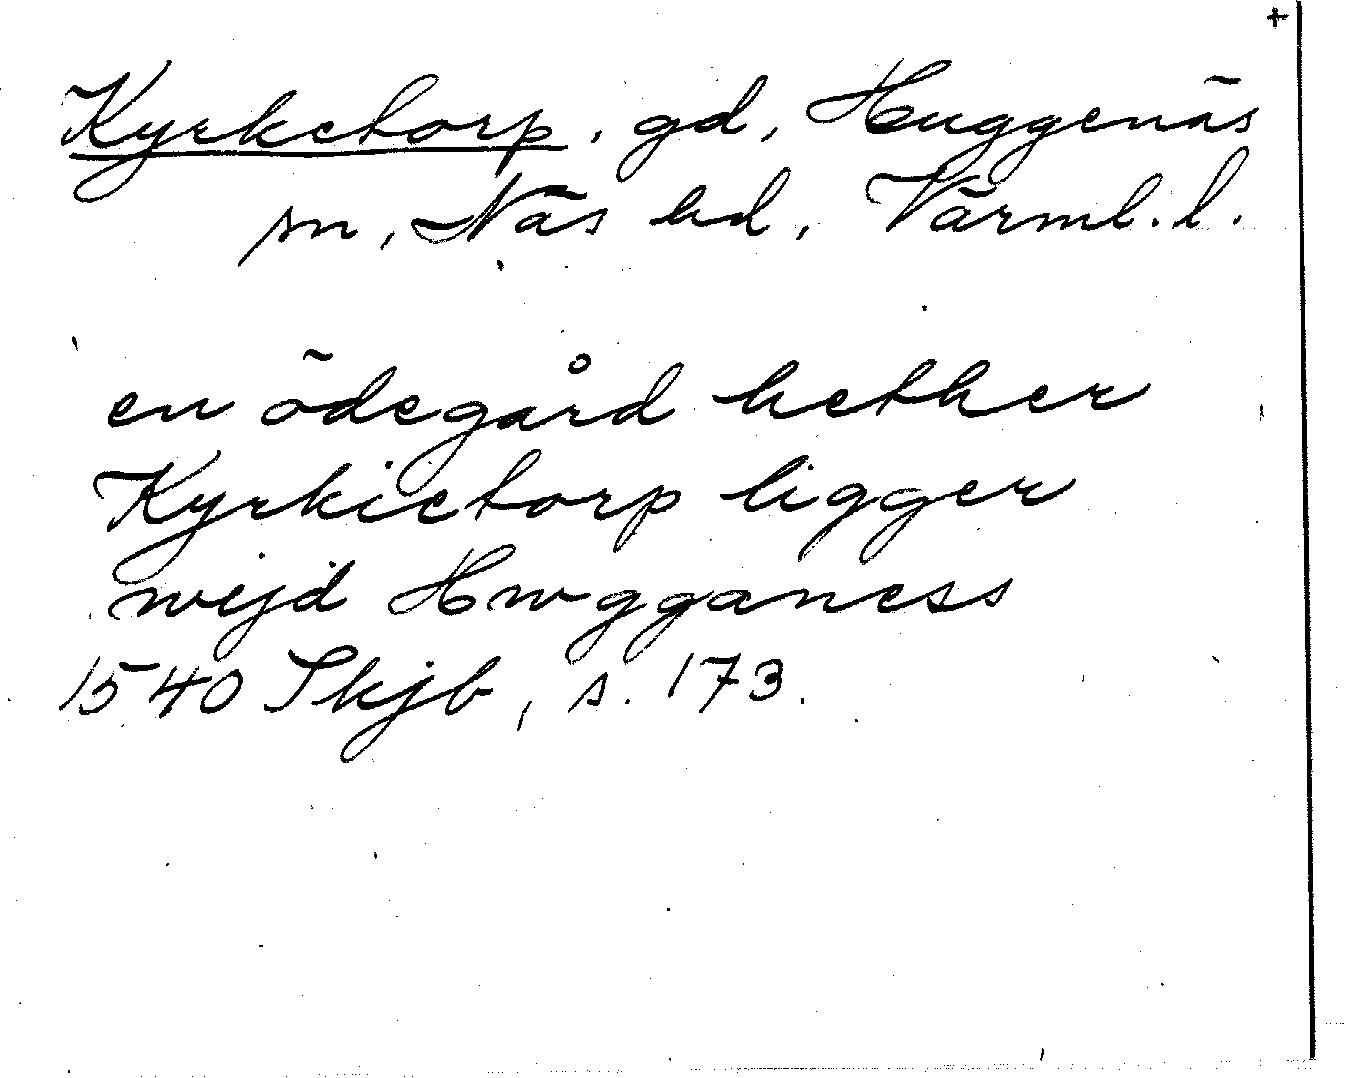 +
Kyrketorp, gd, Huggenäs
sn, Näs hd, Värml. l.
en ödegård hether
Kyrkietorp ligger
wejd Hwgganess
1540 Skjb, s. 173.